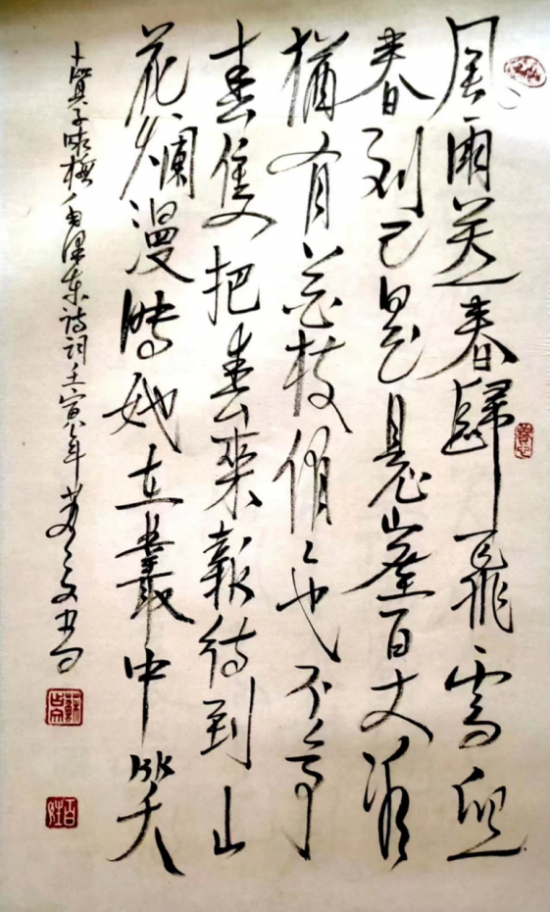 風雨送春歸飛雪迎
春到已是悬崖百丈冰
猶有花枝俏〻也不争
春隻把春來報待到山
花爛漫時她在叢中笑
卜算子咏梅毛泽东诗词壬寅年
百姓